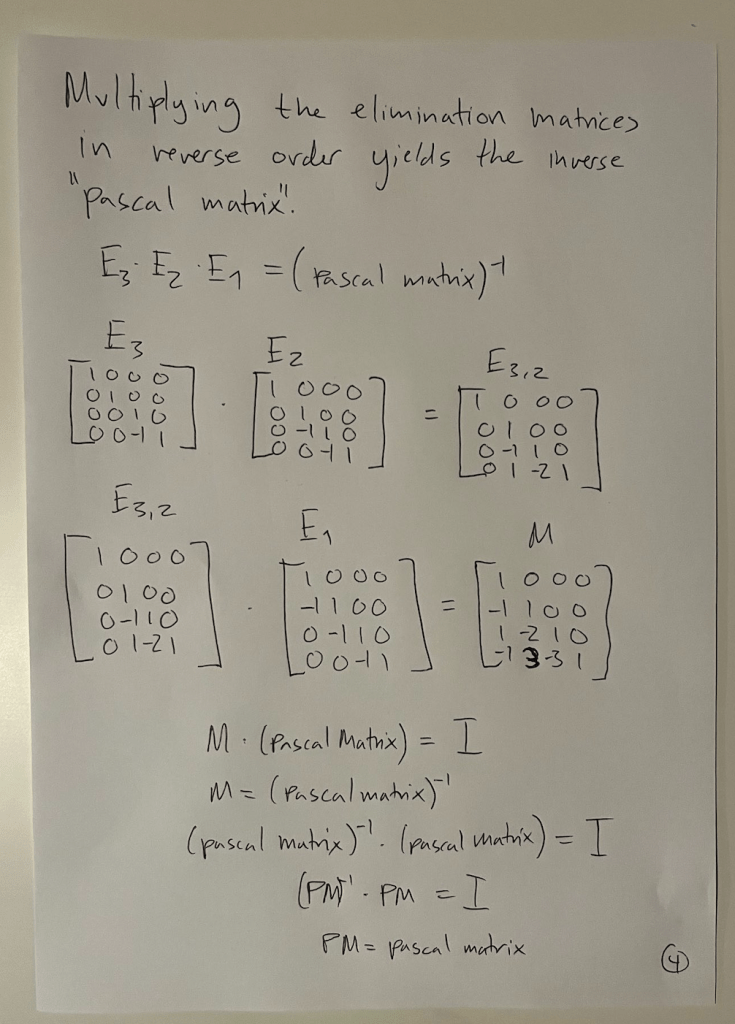 Multiplying the elimination matrices
in reverse order yields the inverse
"pascal matrix".
E3 · E2 · E1 = (pascal matrix)^-1
E3 E2 E3,2
[1 0 0 0 [1 0 0 0 [1 0 0 0
0 1 0 0 0 1 0 0 0 1 0 0
0 0 1 0 · 0 -1 1 0 = 0 -1 1 0
0 0 -1 1] 0 0 -1 1] 0 1 -2 1]
E3,2 E1 M
[1 0 0 0 [1 0 0 0 [1 0 0 0
0 1 0 0 -1 1 0 0 -1 1 0 0
0 -1 1 0 · 0 -1 1 0 = 1 -2 1 0
0 1 -2 1] 0 0 -1 1] -1 3 -3 1]
M · (Pascal Matrix) = I
M = (Pascal matrix)^-1
(pascal matrix)^-1 · (pascal matrix) = I
(PM)^-1 · PM = I
PM = pascal matrix
4